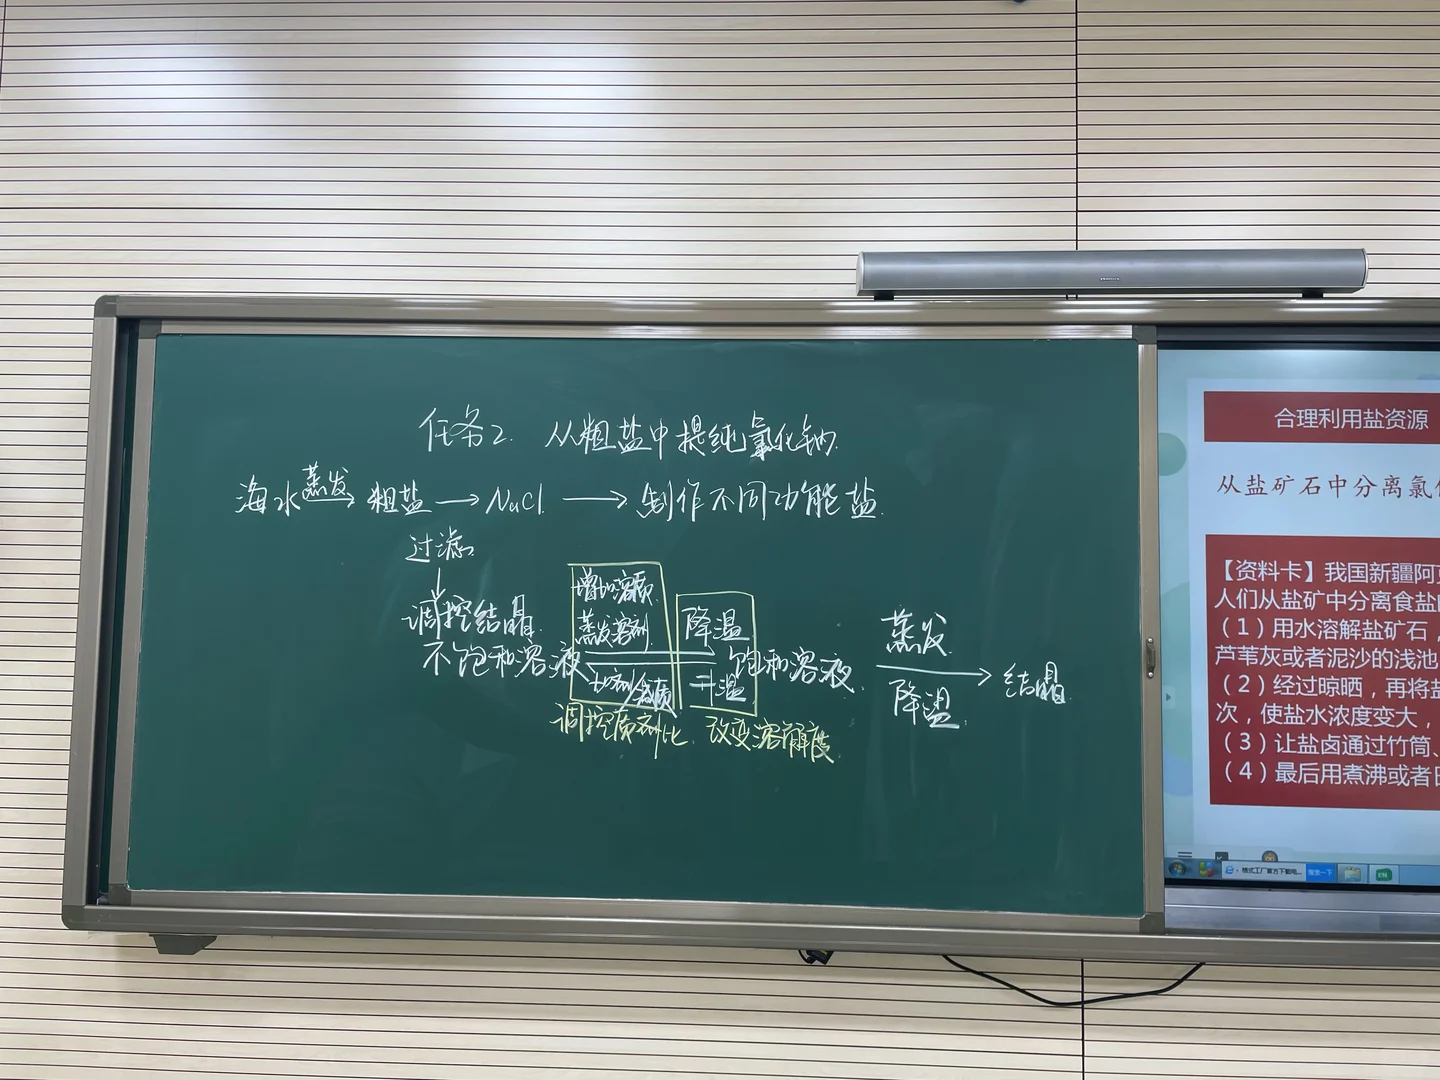 任务2. 从粗盐中提纯氯化钠.
海水 蒸发 → 粗盐 → NaCl. → 制作不同功能盐.
过滤.
↓
调控结晶.
增加溶质.
蒸发溶剂
降温
不饱和溶液
饱和溶液.
升温
蒸发.
降温.
→ 结晶.
调控质剂比. 改变溶解度.
合理利用盐资源
从盐矿石中分离氯
【资料卡】我国新疆阿
人们从盐矿中分离食盐
（1）用水溶解盐矿石，
芦苇灰或者泥沙的浅池
（2）经过晾晒，再将
次，使盐水浓度变大，
（3）让盐卤通过竹筒、
（4）最后用煮沸或者
搜索一下
EN